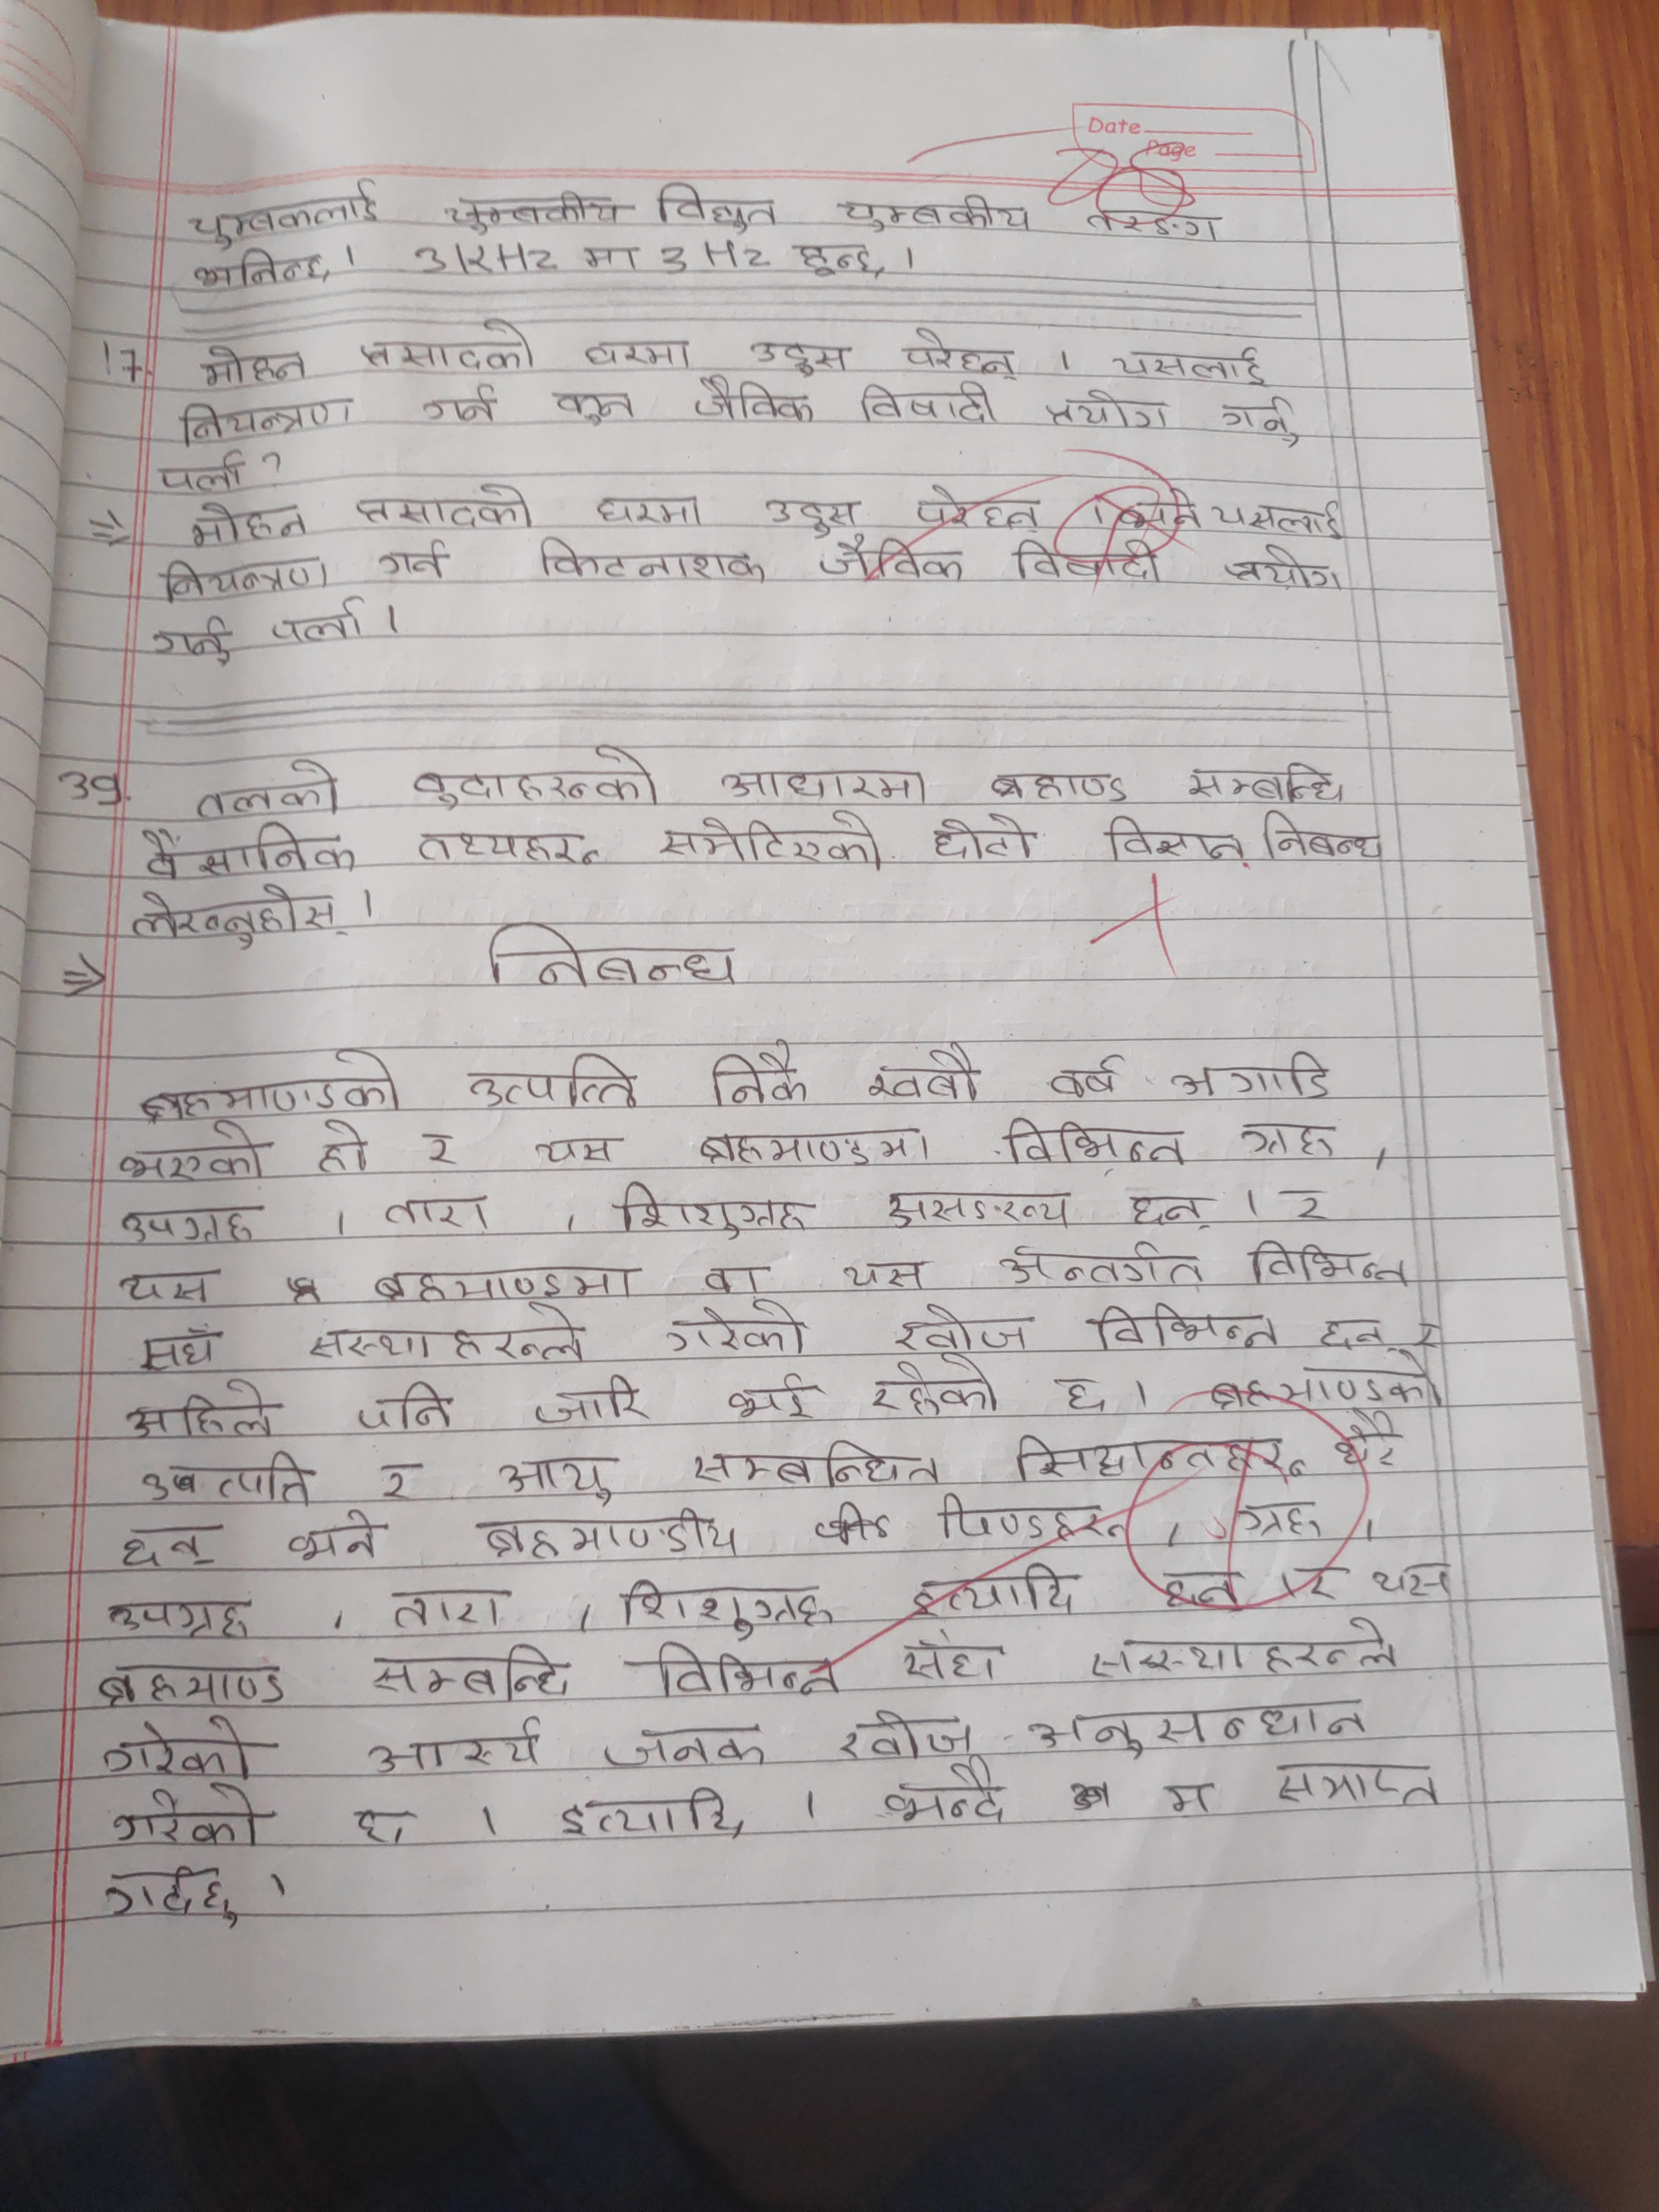 Date
Page
चुम्बकलाई चुम्बकीय विद्युत चुम्बकीय तरङ्ग
भनिन्छ। 3KHz मा 3 Hz हून्छ।
17. मोहन प्रसादको घरमा उडुस परेछन्। यसलाई
नियन्त्रण गर्न कुन जैविक विषादी प्रयोग गर्नु
पर्ला?
⇒ मोहन प्रसादको घरमा उडुस परेछन् । भने यसलाई
नियन्त्रण गर्न किटनाशक जैविक विषादी प्रयोग
गर्नु पर्ला।
39. तलको बुदाहरुको आधारमा ब्रहाण्ड सम्बन्धि
वैज्ञानिक तथ्यहरु समेटिएको छोटो विज्ञान निबन्ध
लेख्नुहोस्।
⇒ निबन्ध
ब्रहमाण्डको उत्पत्ति निकै खर्बौ वर्ष अगाडि
भएको हो र यस ब्रहमाण्डमा विभिन्न ग्रह,
उपग्रह, तारा, शिशुग्रह असङख्य छन्। र
यस ब्रहमाण्डमा वा यस अन्तर्गत विभिन्न
संघँ संस्थाहरुले गरेको खोज विभिन्न छन् र
अहिले पनि जारि भई रहेको छ। ब्रहमाण्डको
उत्पति र आयु सम्बन्धित सिद्यान्तहरु थैरै
छन् भने ब्रहमाण्डीय पिण्डहरु, ग्रह,
उपग्रह, तारा, शिशुग्रह इत्यादि छन् । र यस
ब्रहमाण्ड सम्बन्धि विभिन्न संघ संस्थाहरुले
गरेको आर्स्य जनक खोज अनुसन्धान
गरेको छ। इत्यादि। भन्दै म समाप्त
गर्दछु।